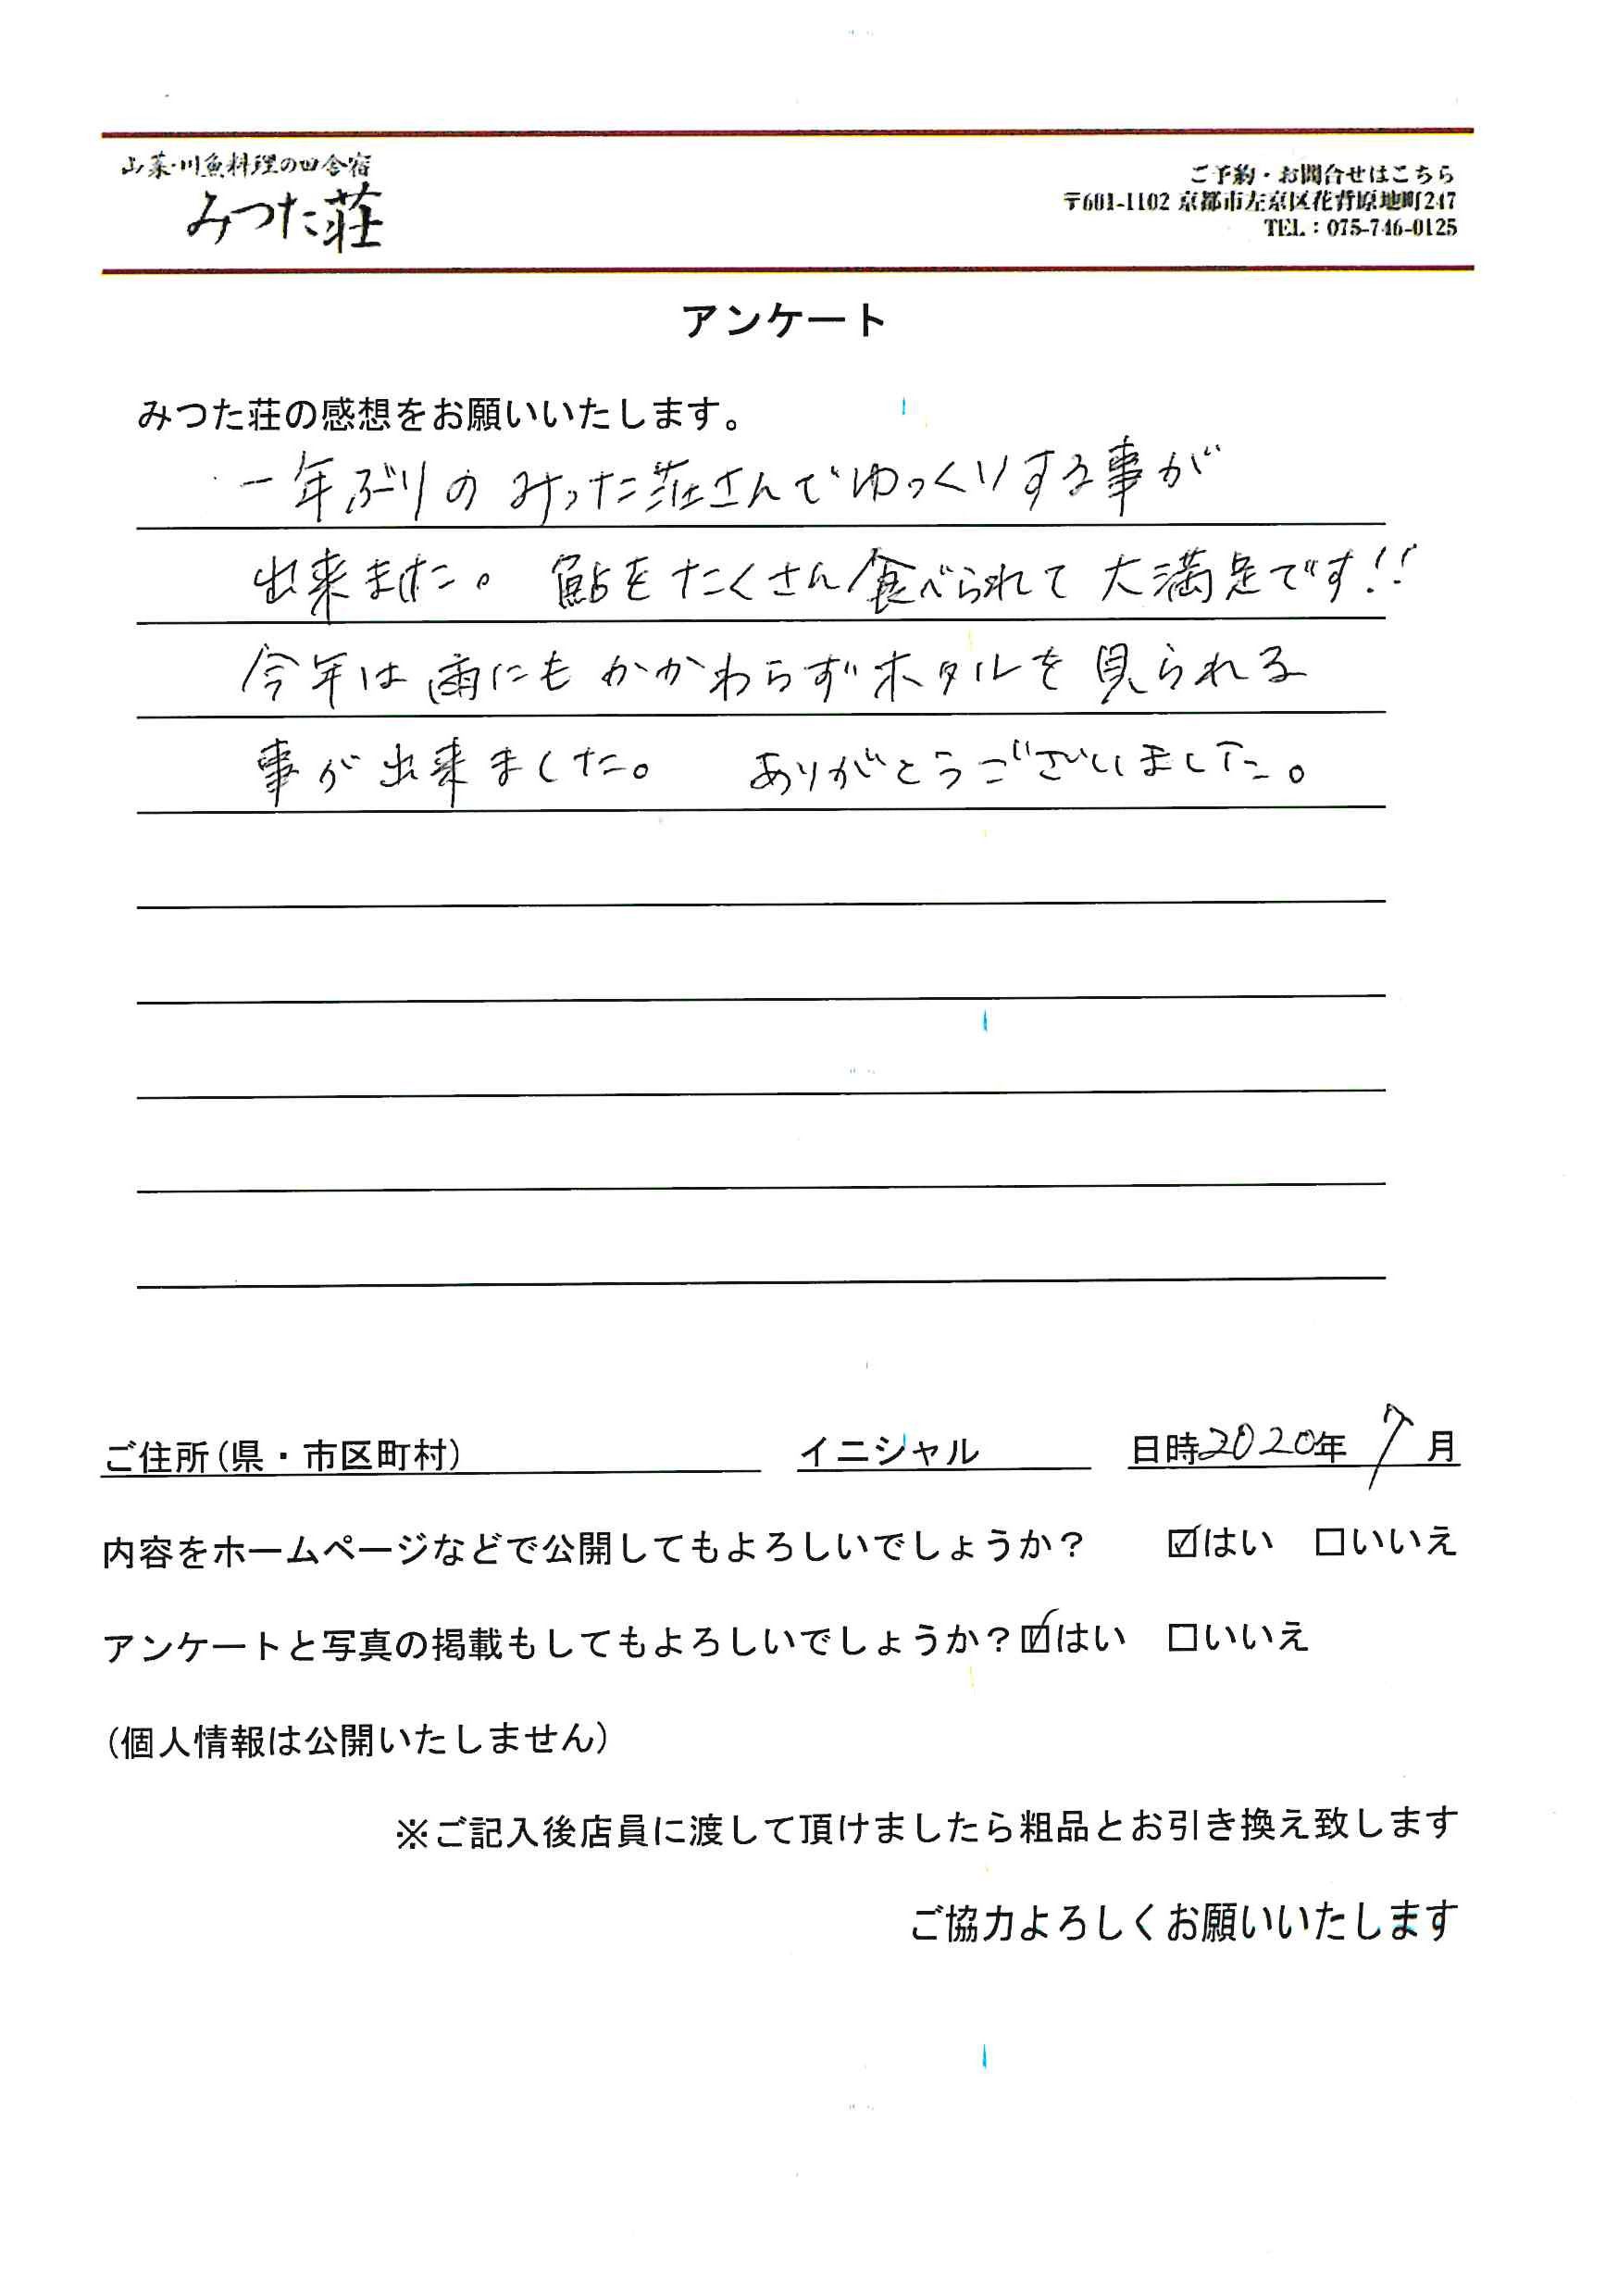 山菜・川魚料理の田舎宿
みつた荘
ご予約・お問合せはこちら
〒601-1102 京都市左京区花背原地町247
TEL：075-746-0125
アンケート
みつた荘の感想をお願いいたします。
一年ぶりのみつた荘さんでゆっくりする事が
出来ました。 鮎をたくさん食べられて大満足です!!
今年は雨にもかかわらずホタルを見られる
事が出来ました。 ありがとうございました。
ご住所(県・市区町村) イニシャル 日時2020年 7月
内容をホームページなどで公開してもよろしいでしょうか？ ☑はい □いいえ
アンケートと写真の掲載もしてもよろしいでしょうか？☑はい □いいえ
(個人情報は公開いたしません)
※ご記入後店員に渡して頂けましたら粗品とお引き換え致します
ご協力よろしくお願いいたします